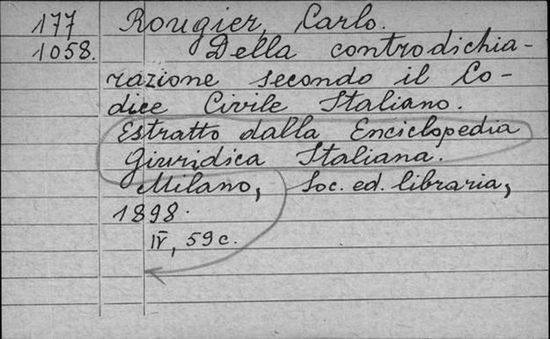 177 Rougier, Carlo.
1058. Della controdichia-
razione secondo il Co-
dice Civile Italiano.
Estratto dalla Enciclopedia
Giuridica Italiana.
Milano, Soc. ed. libraria,
1898.
IV, 59 c.